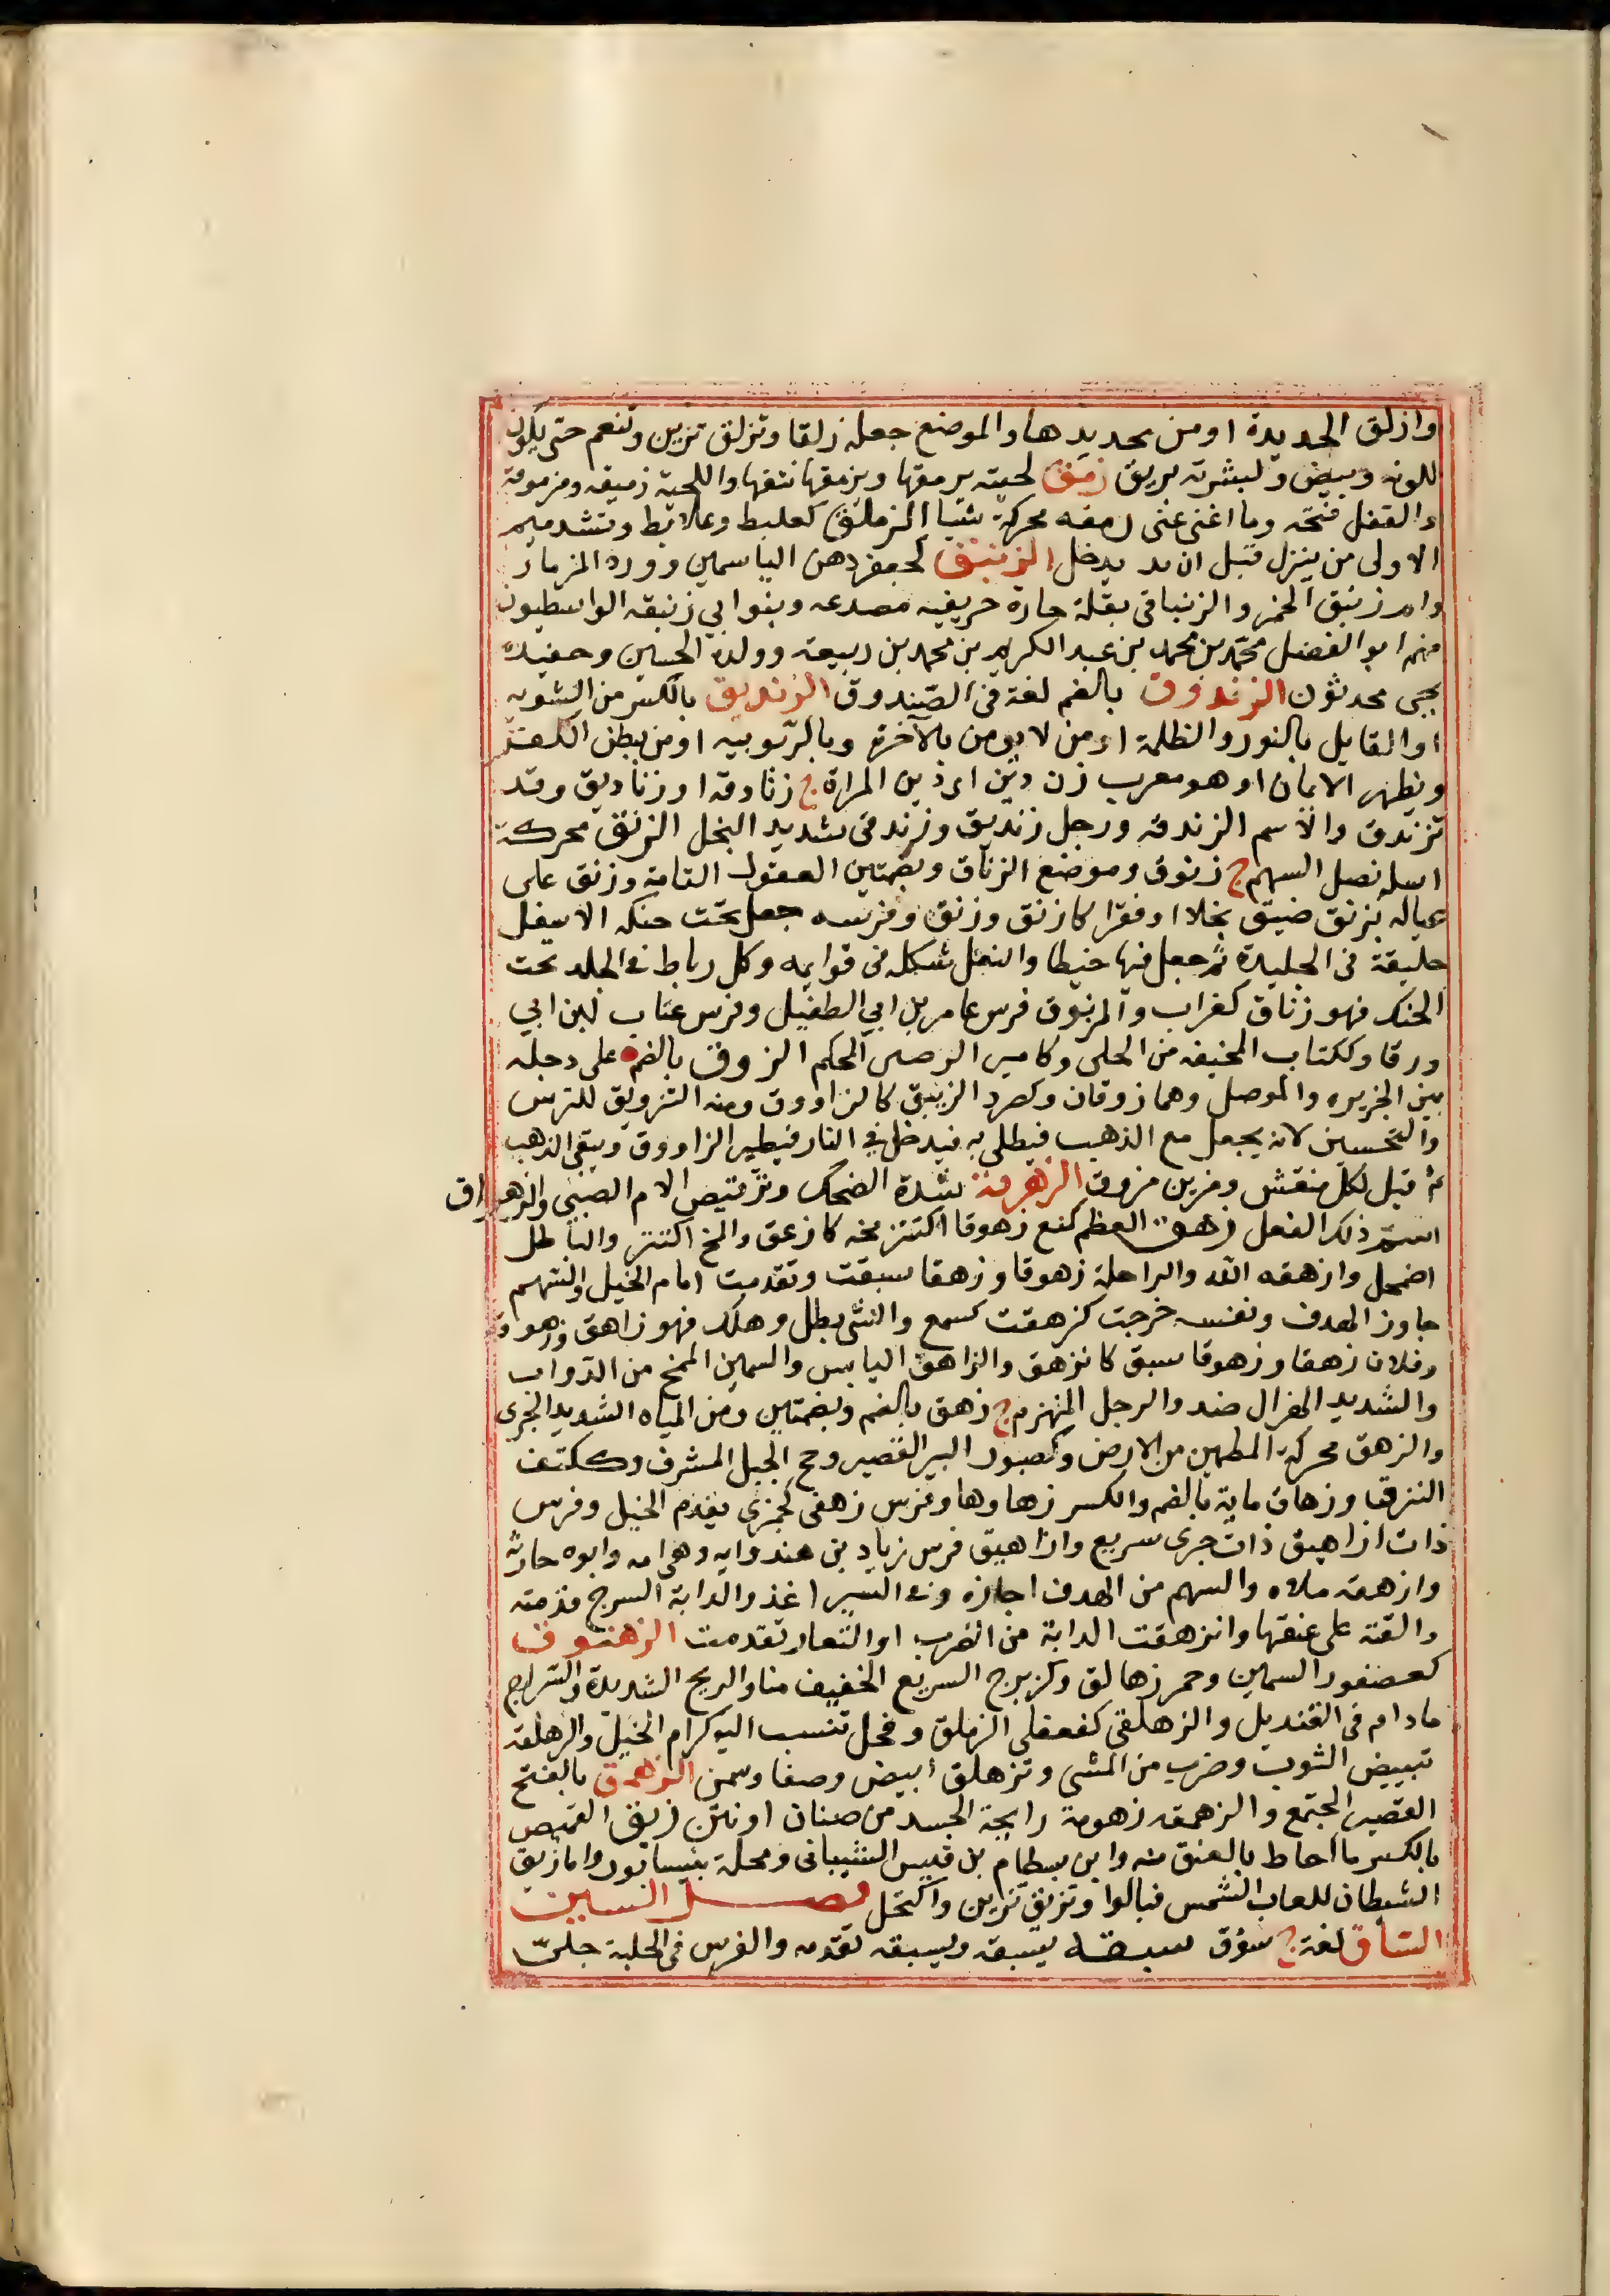 وازلق الحديدة اومن تحديدها والموضع جعله زلقا وتزلق تزين وتنعم حتى يكون
للونه وبيض ولبشرته بريق زمق لحيته يزمقها ويزمقها نتفها واللحية زميقه ومزموقة
والقفل فتحه وما اغنى عنى زمقه محركة شيا الزملق كعلبط وعلابط وتشدميم
الاولى من ينزل قبل ان يدخل الزنبق كجعفر دهن الياسمين وورده المزمار
وام زنبق الخمر والزنباق بقلة حارة حريفيه مصدعه وبنوابي زنبقه الواسطيون
منهم ابو الفضل محمد بن محمد بن عبد الكريم بن محمد بن ربيعة وولده الحسين وحفيده
يحيى محدثون الزندوق بالضم لغة في الصندوق الزنديق بالكسر من الثنويه
اوالقايل بالنور والظلمة اومن لا يومن بالآخرة وبالربوبيه اومن يبطن الكفر
ويظهر الايمان اوهو معرب زن دين اى دين المراة ج زنادقة او زناديق وقد
تزندق والاسم الزندقه ورجل زنديق وزندقى شديد البخل الزنق محركة
اسلة نصل السهم ج زنوق وموضع الزناق وبضمتين العقول التامة وزنق على
عياله يزنق ضيق بخلا اوفقرا كازنق وزنق وفرسه جعل تحت حنكه الاسفل
حليقة في الجليدة ثم جعل فيها خيطا والبغل شكله في قوايمه وكل رباط في الجلد تحت
الحنك فهو زناق كغراب والمزنوق فرس عامر بن ابي الطفيل وفرس عتاب لبن ابي
ورقا وككتاب المخنقه من الحلى وكامير الرصى المحكم الزوق بالضم على دجله
بين الجزيره والموصل وهما زوقان وكصرد الزيبق كالزاووق ومنه التزويق للتزين
والتحسين لانه يجعل مع الذهب فيطلى به فيدخل في النار فيطير الزاووق ويبقى الذهب
ثم قيل لكل منقش ومزين مزوق الزهزقة شدة الضحك وترقيص الام الصبى والزهزاق
اسم ذلك الفعل زهق العظم كمنع زهوقا اكتنز مخه كازهق والمخ اكتنز والباطل
اضمحل وازهقه الله والراحلة زهوقا وزهقا سبقت وتقدمت امام الخيل والسهم
جاوز الهدف ونفسه خرجت كزهقت كسمع والشى بطل وهلك فهو زاهق وزهوق
وفلان زهقا وزهوقا سبق كانزهق والزاهق اليابس والسمين الممخ من الدواب
والشديد الهزال ضد والرجل المنهزم ج زهق بالضم وبضمتين ومن المياه الشديد الجرى
والزهق محركة المطمين من الارض وكصبور البير القعير وفج الجبل المشرف وككتف
النزق وزهاق ماية بالضم والكسر زهاوها وفرس زهقى كجمزى يقدم الخيل وفرس
ذات ازاهيق ذات جرى سريع وازاهيق فرس زياد بن هندوايه وهى امه وابوه حارثه
وازهقه ملاه والسهم من الهدف اجازه وفي السير اغذ والدابة السرج قدمته
والقته على عنقها وانزهقت الدابة من الضرب اوالنفار تقدمت الزهلوق
كعصفور السمين وحمر زهالق وكزبرج السريع الخفيف منا والريح الشديدة والسراج
مادام في القنديل والزهلقى كقعقلى الزملق وفحل تنسب اليه كرام الخيل والزهلقه
تبييض الثوب وضرب من المشى وتزهلق ابيض وصفا وسمن الزهمق بالفتح
القصير المجتمع والزهمقه زهومة رايحة الجسد من صنان اونتن زيق القميص
بالكسر ما احاط بالعنق منه وابن بسطام بن قيس الشيبانى ومحلة بنيسابور واما زيق
الشيطان للعاب الشمس فبالوا وتزيق تزين واكتحل فصل السين
الساق لغة ج سؤق سبقه يسبقه ويسبقه تقدمه والفرس في الحلبة جلى